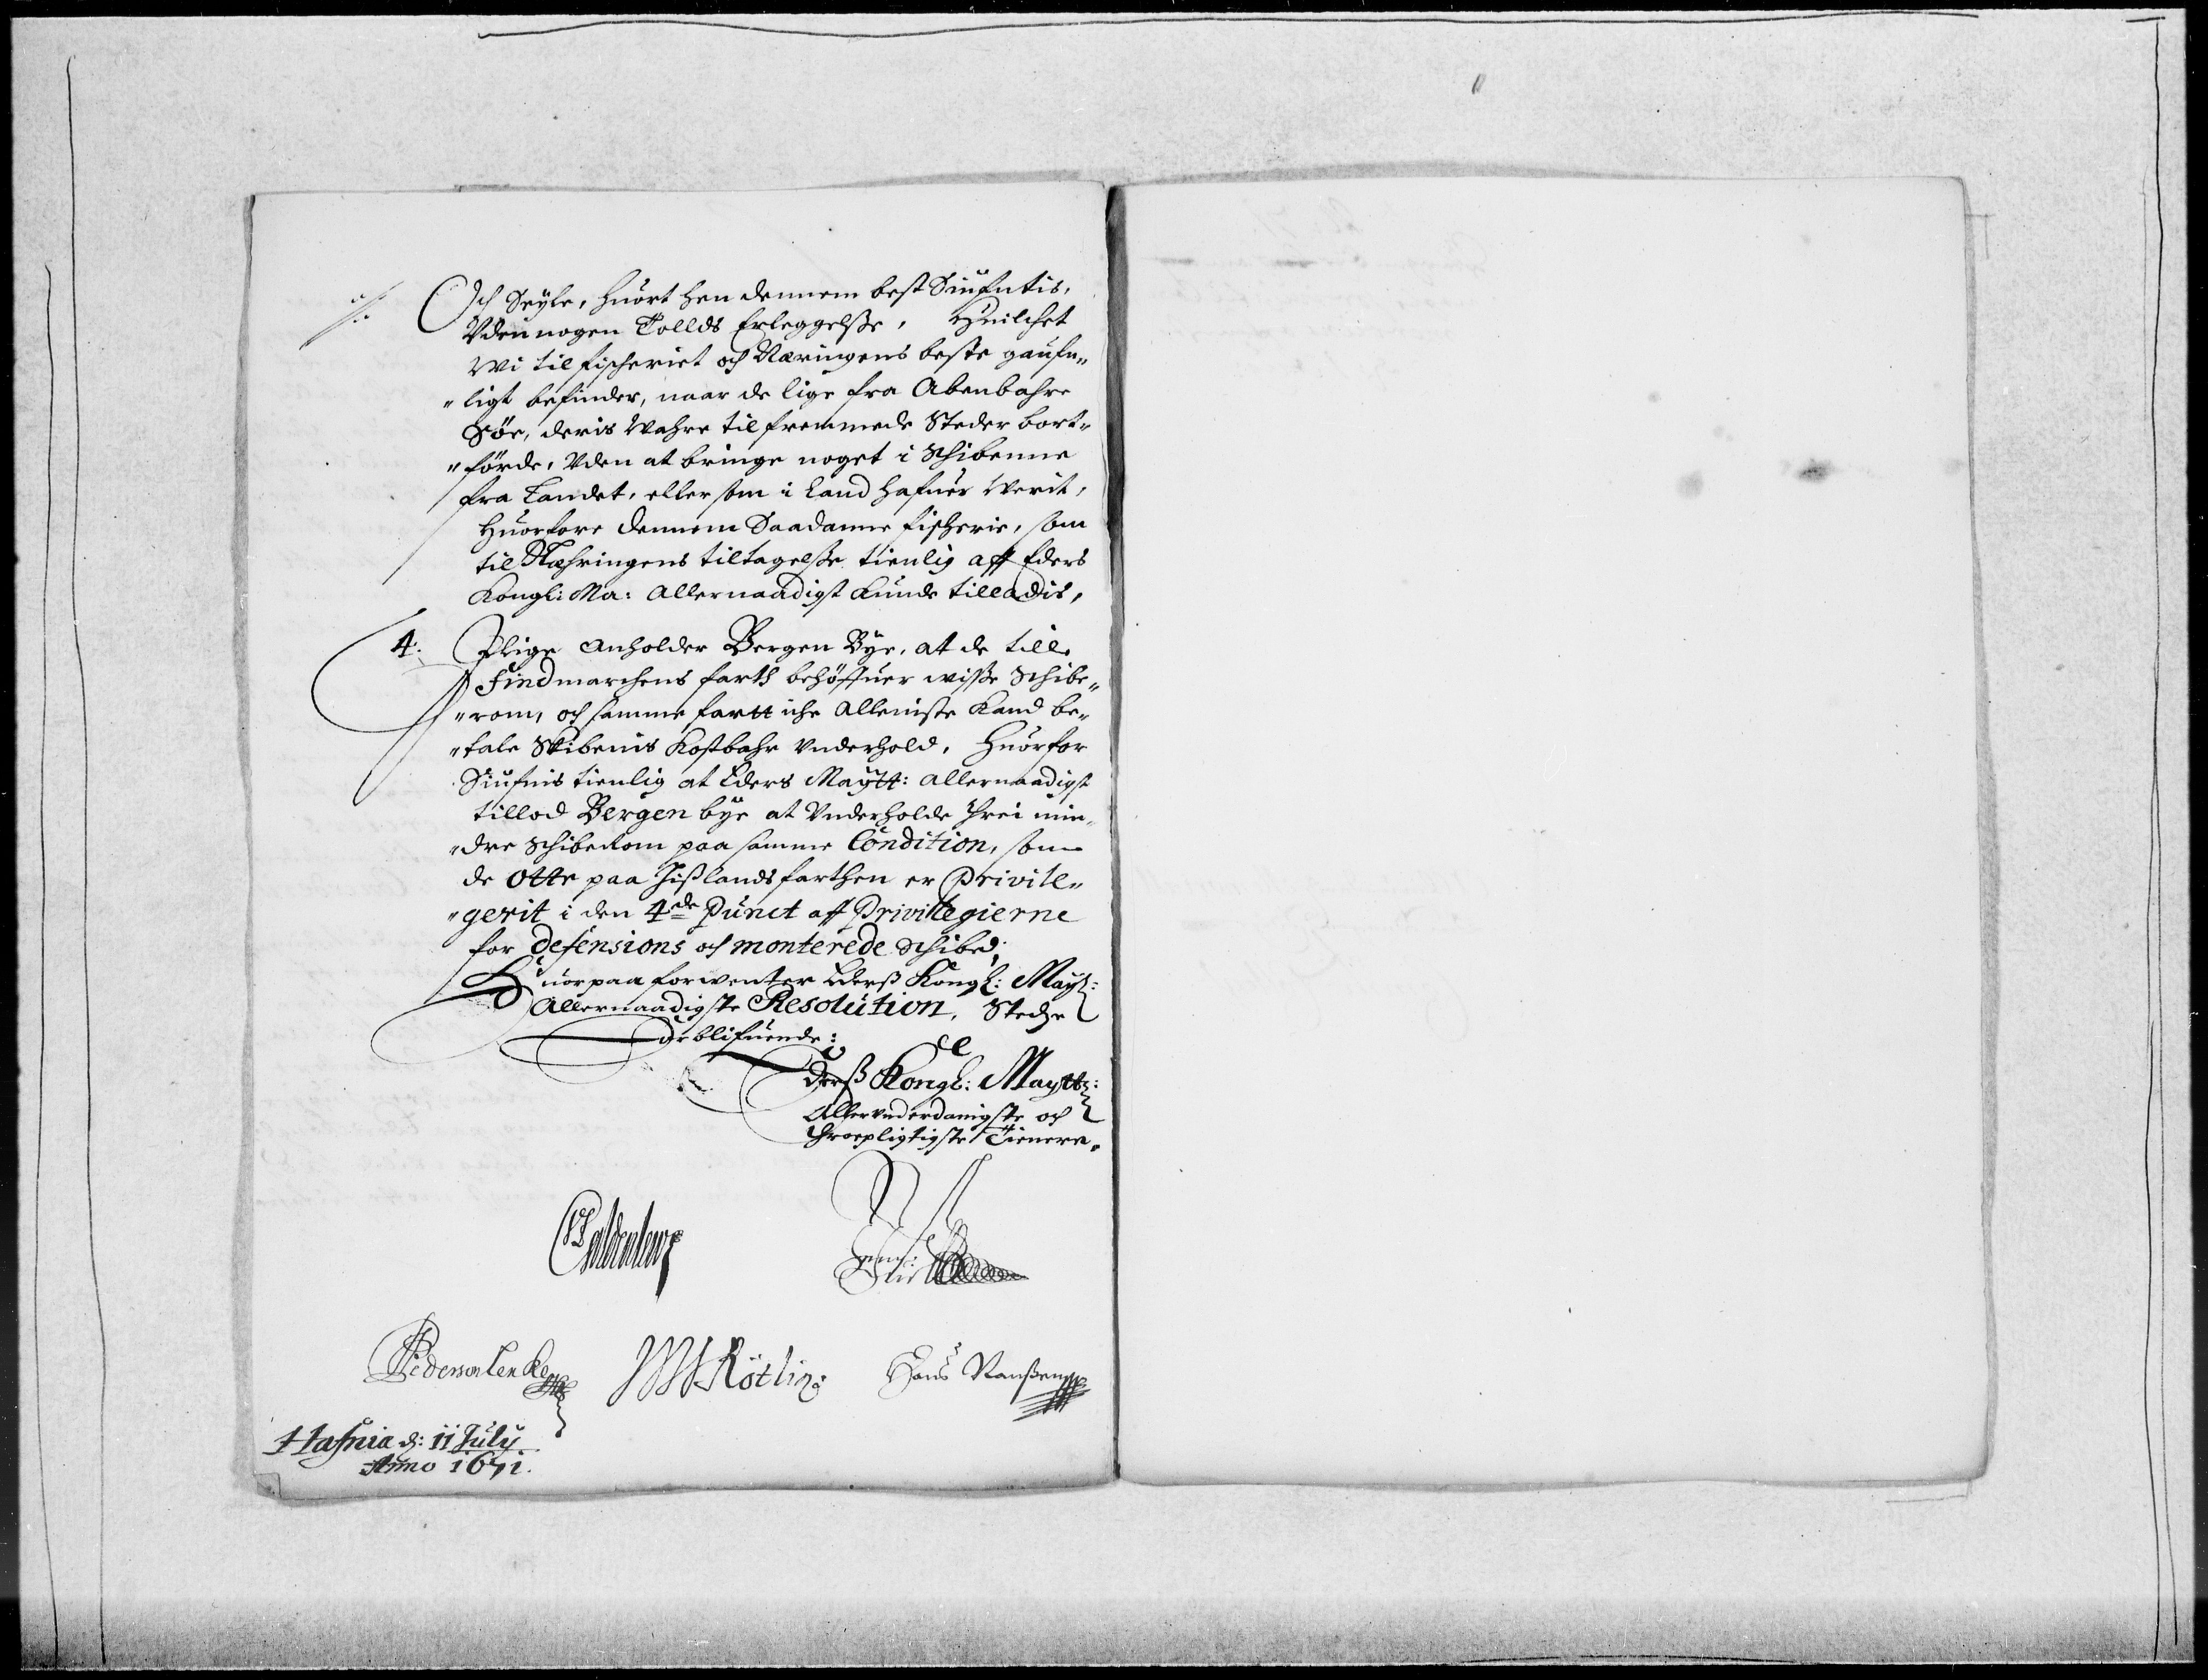 Och Seyle, huort hen dennem best Siufntis,
Vden nogen Tollds Erleggelsse, Huilchet
Wi til fischeriet och Næringens beste gaufn„
„ligt befinder, naar de lige fra Abenbahre
Søe, deris Wahre til fremmede Steder bort„
„förde, Vden at bringe noget i Schibenne
fra Landet, eller som i Land hafuer Verit,
Huorfore dennem Saadanne fischerie, som
til Næhringens tiltagelsse tienlig aff Eders
Kongl: Ma: Allernaadigst kunde tilladis,
4. Jlige Anholder Bergen Bye, at de till
Findmarchens farth behöffuer wisse Schibe„
„rom, och samme fartt iche Alleniste Kand be„
„tale Skibenis Kostbahr Vnderhold, Huorfor
Siufnis tienlig at Eders Maytt: allernaadigst
tillod Bergen bye at Vnderholde Threi min„
„dre Schiberom paa samme Condition, som
de Otte paa Jißlands farthen er Privile„
„gerit i den 4de Punct aff Privillegierne
for defensions och monterede Schibe;
Huorpaa forwenter Eders Kongl: Mayt:
Allernaadigste Resolution, Stedze
forblifuende:
Ederß Kongl: Maytts:
Allervnderdanigste och
throepligtigste Tienere.
Gyldenlew
Pederson Lenke
Rötlin:
Hans Nanßen
Hafnia d: 11 July
Anno 1671.